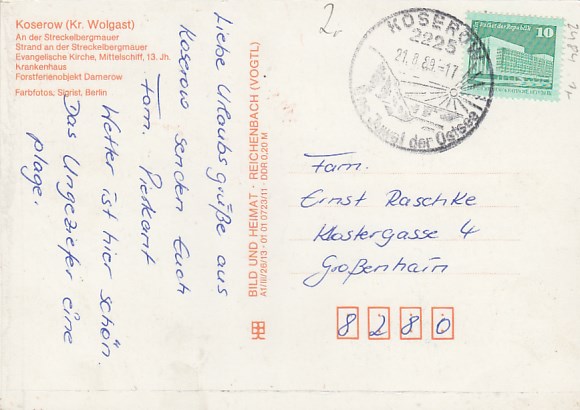 Koserow (Kr. Wolgast)
An der Streckelbergmauer
Strand an der Streckelbergmauer
Evangelische Kirche, Mittelschiff, 13. Jh.
Krankenhaus
Forstferienobjekt Damerow
Farbfotos: Sigrist, Berlin
Liebe Urlaubsgrüße aus
Koserow senden Euch
Fam. Pierkant
Wetter ist hier schön.
Das Ungeziefer eine
plage.
BILD UND HEIMAT · REICHENBACH (VOGTL)
A1/III/26/13 · 01 01 0723/11 DDR 0,20 M
2,-
KOSEROW
2225
21.8.89.-17
der Ostsee!
der Republik
10
Fam.
Ernst Raschke
Klostergasse 4
Großenhain
8280